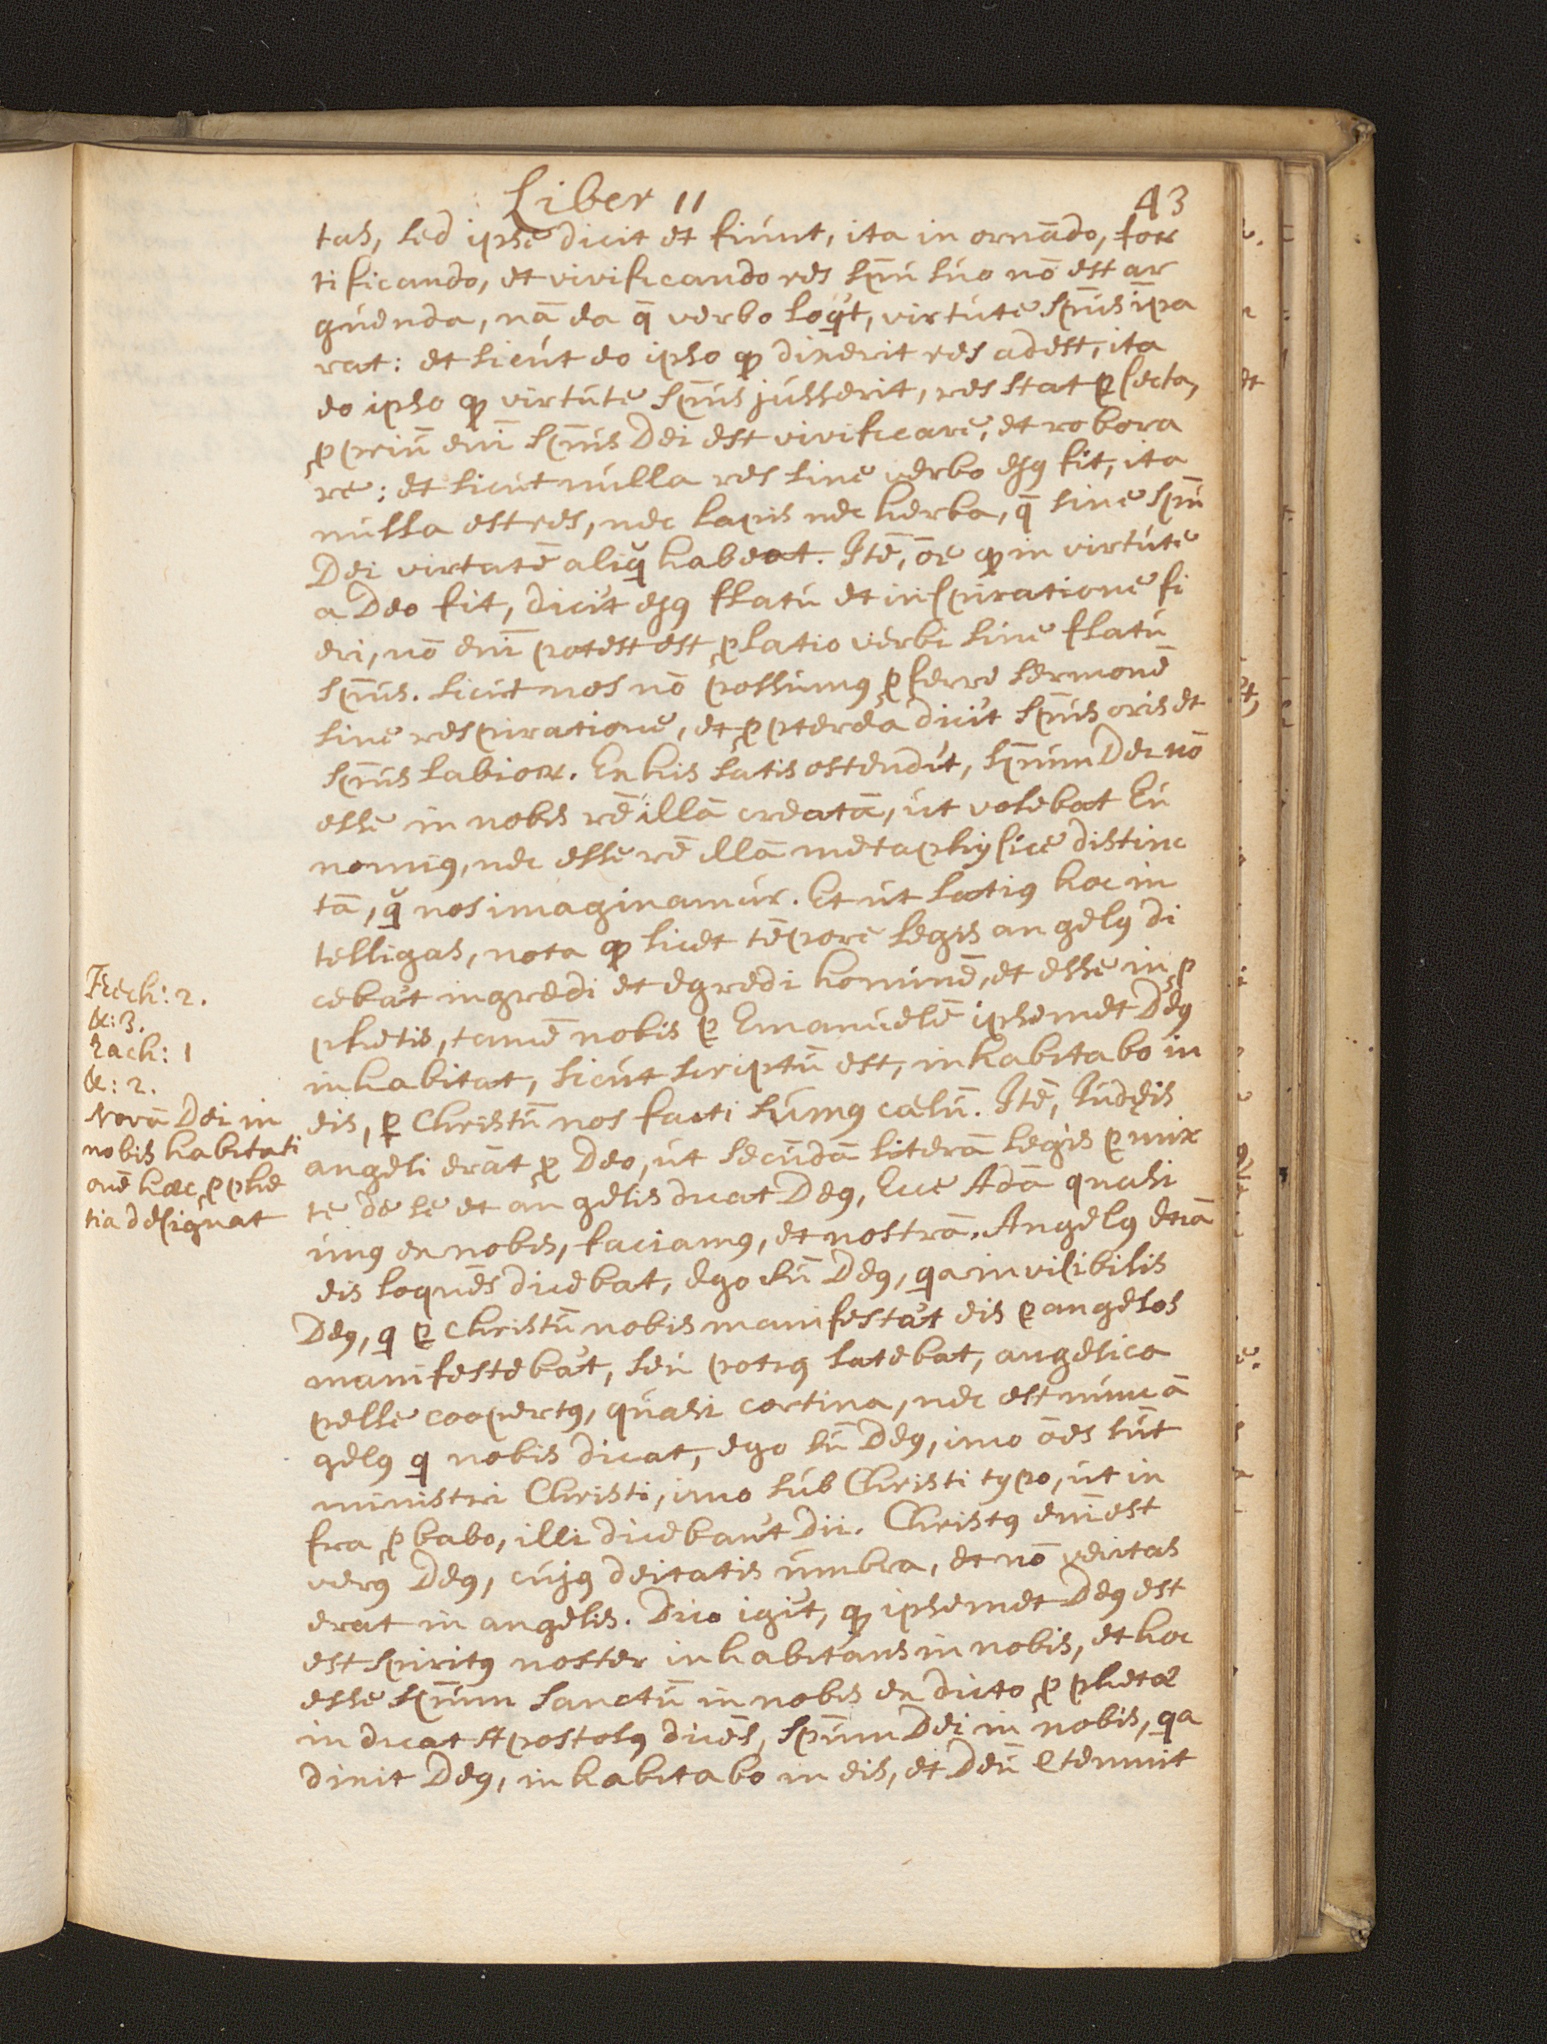 Liber II 43
tas, sed ipse dicit et fiunt, ita in ornādo, for
tificando, et vivificando res spū suo nō est ar
guenda, nā ea q̄ verbo loqūt, virtute spūs ipa
rat: et sicut eo ipso qꝫ dixerit res adest, ita
eo ipso qꝫ virtute spūs jusserit, res stat ꝑfecta,
ꝓpriū eni͞ spūs Dei est vivificare, et robora
re: et sicut nulla res sine verbo ejꝰ fit, ita
nulla est res, nec lapis nec herba, q̄ sine spū
Dei virtutē aliq̄ habeat. Itē, ōe qꝫ in virtute
a Deo fit, dicit͛ ejꝰ flatu et inspiratione fi
eri, nō eni͞ potest est ꝓlatio verbi sine flatu
spūs. sicut nos nō possumꝰ ꝓferre sermonē
sine respiratione, et ꝓpterea dicit͛ spūs oris et
spūs labioꝝ. Ex his satis ostendit͛, spūm Dei nō
esse in nobis rē illā creatā, ut volebat Eu
nomiꝰ, nec esse rē illā metaphysice distinc
tā, q̄ nos imaginamur. Et ut latiꝰ hoc in
telligas, nota qꝫ licet tēpore legis angelꝰ di
cebat͛ ingredi et egredi hominē, et esse in ꝓ
phetis, tamē nobis ꝑ Emanuelē ipsemet Deꝰ
inhabitat, sicut scriptū est, inhabitabo in
eis, ꝑ Christū nos facti sumꝰ cælū. Itē, Iudęis
angeli erāt ꝓ Deo, ut secūdā literā legis ꝑmix
te de se et angelis dicat Deꝰ, Ecce Adā quasi
unꝰ ex nobis, faciamꝰ, et nostrā. Angelꝰ etiā
eis loquēs dicebat, ego sū Deꝰ, qa invisibilis
Deꝰ, q ꝑ Christū nobis manifestat͛ eis ꝑ angelos
manifestebat͛, seu potiꝰ latebat, angelica
pelle coopertꝰ, quasi cortina, nec est nunc ā
gelꝰ q nobis dicat, ego sū Deꝰ, imo ōes sūt
ministri Christi, imo sub Christi typo, ut in
fra ꝓbabo, illi dicebant͛ Dii. Christꝰ eni͞ est
verꝰ Deꝰ, cujꝰ deitatis umbra, et nō veritas
erat in angelis. Dico igit͛, qꝫ ipsemet Deꝰ est
est spiritꝰ noster inhabitans in nobis, et hoc
esse spūm sanctū in nobis ex dicto ꝓphetæ
indicat Apostolꝰ dicēs, spūm Dei in nobis, qa
dixit Deꝰ, inhabitabo in eis, et Deū
Zach: 1
&: 2.
&: 3.
Novā Dei in
nobis habitati
onē hæc ꝓphe
tia designat